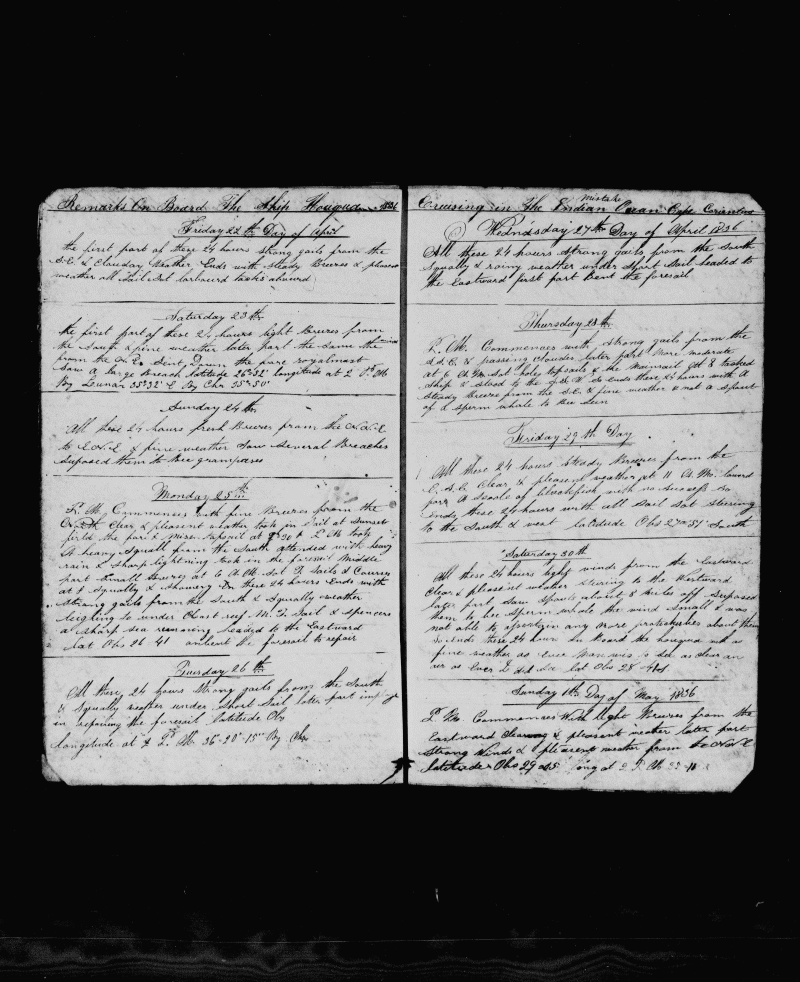 Remarks On Board The Ship Houqua 1836
Friday 22th Day of April
the first part of these 24 hours strong gails from the
S.E. & Clauday Weather Ends with Steady Breezes & pleasent
weather all Sail Set larbourd tacks aboard
Saturday 23th
the first part of these 24 hours light Breezes from
the South & fine weather later part the same the
from the Sent Down the pare royalmast
Saw a large Breach latitude 36°32' longitude at 2 P.M.
By Leunar 35°32' E By Chr 35°50'
Sunday 24th
All these 24 hours fresh Breezes from the N.N.E
to E.N.E. & fine weather Saw Several Breaches
Suposed them to bee grampases
Monday 25th
P. M. Commences with fine Breezes from the
Clear & pleasent weather took in Sail at Sunset
P. M. took
A heavy Squall from the South attended with heavy
rain & Sharp lightning took in the foresail Middle
part Small Breezes at 6 A.M. Set T. Sails & Courses
at 8 Squally & Showery So these 24 hours Ends with
Strong gails from the South & Squally weather
under Close reef M. T. Sail & Spencers
a Sharp Sea running headed to the Eastward
Lat Obs 26 41 unbent the foresail to repair
Tuesday 26th
All these 24 hours Strong gails from the South
& Squally weather under Short Sail later part imploye
in repairing the foresail latitude Obs
Longitude at 2 P. M. 36°-20'-15" By Chr
Cruising in the Indian Ocean Cape Corientes
Mistake
Wednsday 27th Day of April 1836
All these 24 hours Strong gails from the South
Squally & rainy weather under Short Sail headed to
the Eastward first part Bent the foresail
Thursday 28th
P. M. Commences with Strong gails from the
S.S.E. & passing clouds later part More moderate
at 6 A.M. Set hole topsails & the Mainsail at 8 tacked
Ship & Stood to the S.S.W. So Ends these 24 hours with A
Steady Breeze from the S.E. & fine weather & not a Spout
of a Sperm whale to Bee Seen
Friday 29th Day
All these 24 hours Steady Breezes from the
E.S.E. Clear & pleasent weather at 11 A.M. lowerd
for A Scoole of Blackfish with no Sucsess So
Ends these 24 hours with all Sail Set Steering
to the South & west latitude Obs 27°51' South
Saturday 30th
All these 24 hours light winds from the Eastward
Clear & pleasent weather Stering to the Westward
later part Saw Spouts about 8 Miles off Suposed
them to bee Sperm whale the wind Small & was
not able to assertain any More about them
So Ends these 24 hours On Board the houqua
fine weather as Ever Man was & as Clear an
air as Ever I did See lat Obs 28°
Sunday 1th Day of May 1836
P. M. Commences With light Breezes from the
Eastward Clear & pleasent weather later part
Strong Winds & pleasent weather from
latitude Obs 29°45' long at 2 P. M. 33